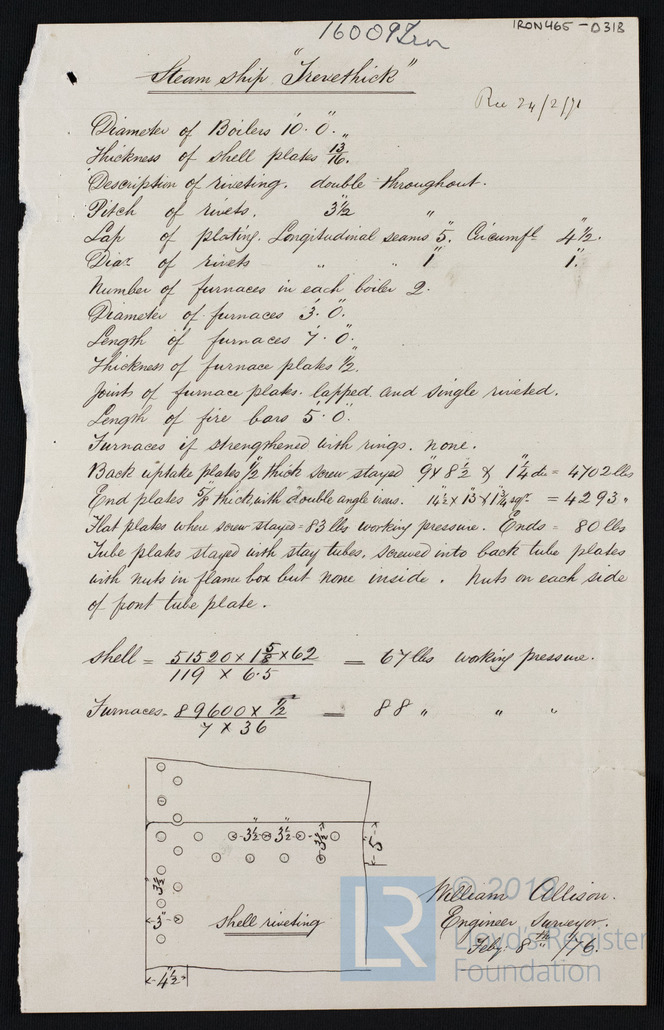 16009 Iron
IRON465-0318
Steam ship "Trevethick"
Rec 24/2/71
Diameter of Boilers 10'. 0".
Thickness of shell plates 13/16".
Description of riveting. double throughout.
Pitch of rivets. 3½ "
Lap of plating. Longitudinal seams 5". Circumfl 4½".
Diar of rivets " " 1" 1".
Number of furnaces in each boiler 2.
Diameter of furnaces 3'. 0".
Length of furnaces 7'. 0".
Thickness of furnace plates ½".
Joints of furnace plates. lapped and single riveted.
Length of fire bars 5'. 0".
Furnaces if strengthened with rings. none.
Back uptake plates ½" thick screw stayed 9" x 8½" & 1¼" di = 4702 lbs
End plates 5/8" thick, with double angle irons. 14½" x 13" x 1¾" sqr = 4293 "
Flat plates where screw stayed = 83 lbs working pressure. Ends = 80 lbs
Tube plates stayed with stay tubes, screwed into back tube plates
with nuts in flame box but none inside. Nuts on each side
of front tube plate.
Shell = 51520 x 1 5/8 x 62 = 67 lbs working pressure.
119 x 6.5
Furnaces = 89600 x ½² = 88 " " "
7 x 36
3½" 3½" 3½"
5"
3½
3"
shell riveting
4½"
William Allison.
Engineer Surveyor.
Feby 8th /76.
LR
© 2019
Lloyd's Register
Foundation